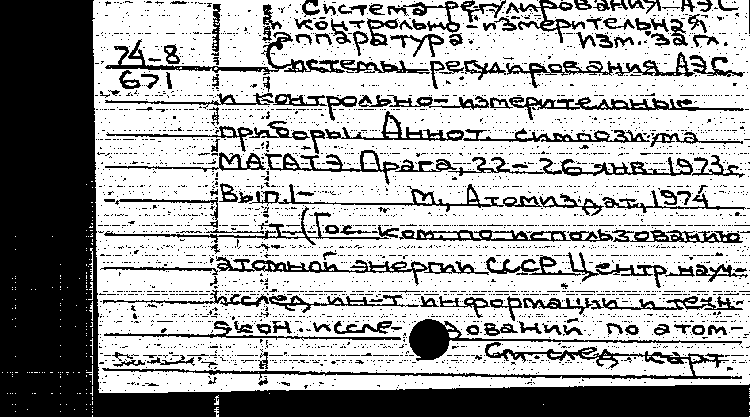 Система регулирования АЭС
и контрольно-измерительная
аппаратура. изм. загл.
74-8
671
Системы регулирования АЭС
и контрольно-измерительные
приборы. Аннот. симпозиума
МАГАТЭ. Прага, 22-26 янв. 1973г.
Вып.1- М., Атомиздат, 1974.
т. (Гос. ком. по использованию
атомной энергии СССР. Центр. науч-
исслед. ин-т информации и техн-
экон. иссле-дований по атом-
См. след. карт.